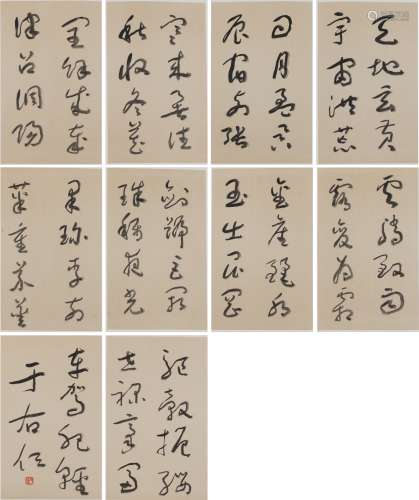 天地玄黃
宇宙洪荒
日月盈昃
辰宿列張
寒來暑往
秋收冬藏
閏餘成歲
律呂調陽
雲騰致雨
露結為霜
金生麗水
玉出崑岡
劍號巨闕
珠稱夜光
果珍李柰
菜重芥薑
驅轂振纓
世祿侈富
車駕肥輕
于右任